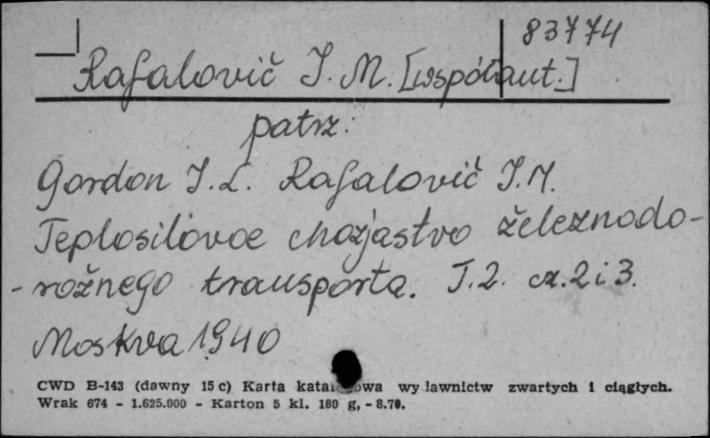 83774
Rafalovič I. M. [współaut.]
patrz:
Gordon I.L. Rafalovič I.M.
Teplosilovoe chozjastvo železnodo-
-rožnego transporta. T.2. cz.2 i 3.
Moskva 1940
CWD B-143 (dawny 15 c) Karta wydawnictw zwartych i ciągłych.
Wrak 674 - 1.625.000 - Karton 5 kl. 180 g, - 8.70.